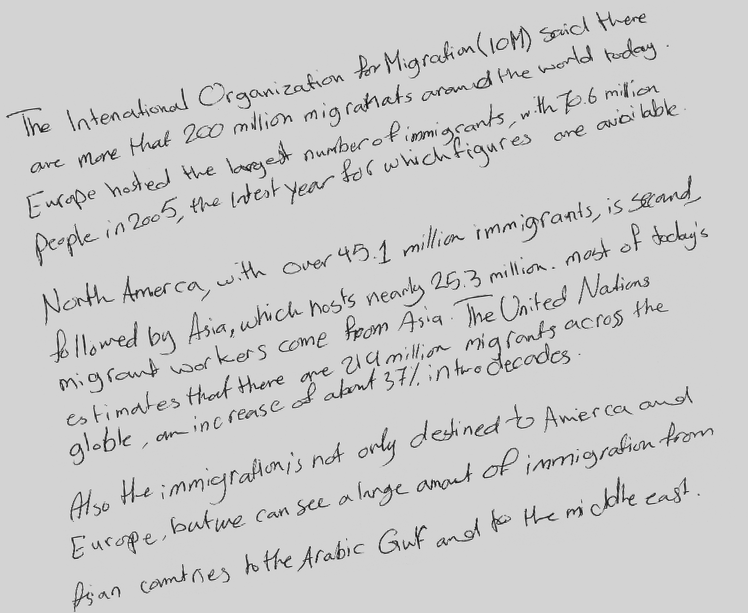 The Intenational Organization for Migration (IOM) said there
are more that 200 million migrahats around the world today.
Europe hosted the largest number of immigrants, with 70.6 million
people in 2005, the latest year for which figures are avialable.
North Amerca, with over 45.1 million immigrants, is second,
followed by Asia, which hosts nearly 25.3 million. most of today's
migrant workers come from Asia. The United Nations
estimates that there are 214 million migrants across the
globle, an increase of about 37% in two decades.
Also the immigration is not only destined to Amerca and
Europe, but we can see a large amout of immigration from
Asian countries to the Arabic Gulf and to the middle east.